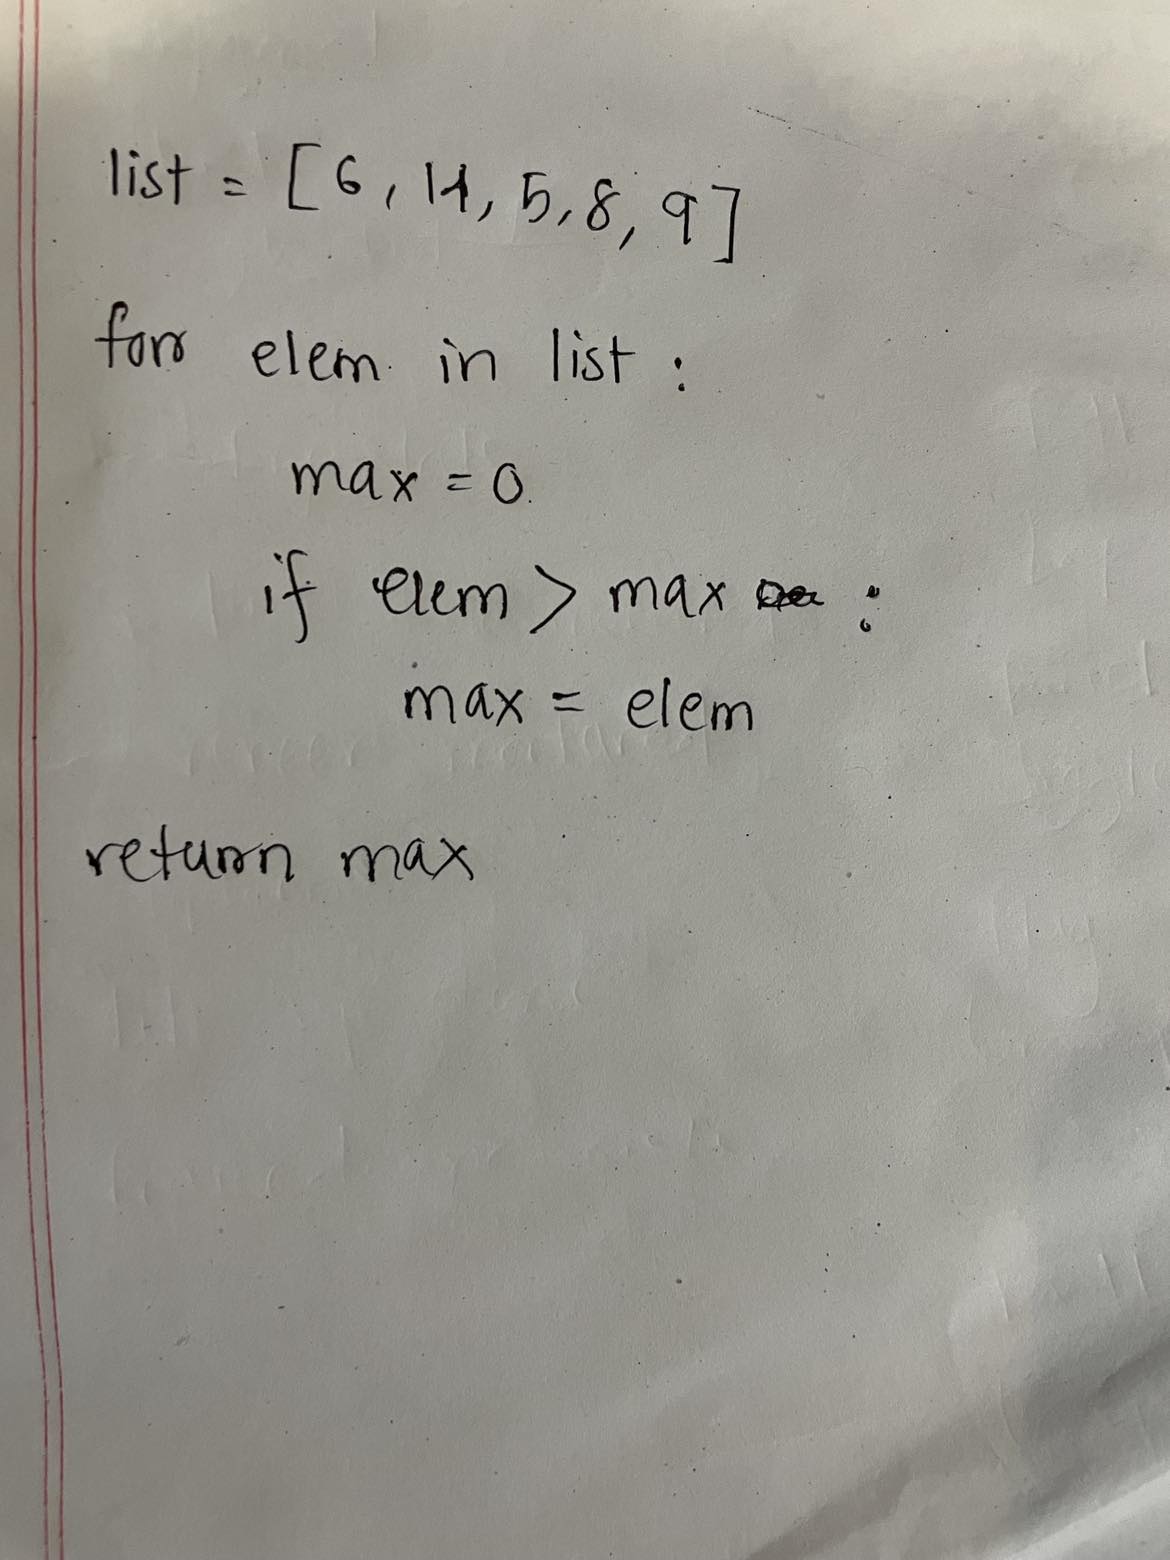 list = [6, 14, 5, 8, 9]
for elem in list :
max = 0
if elem > max :
max = elem
return max